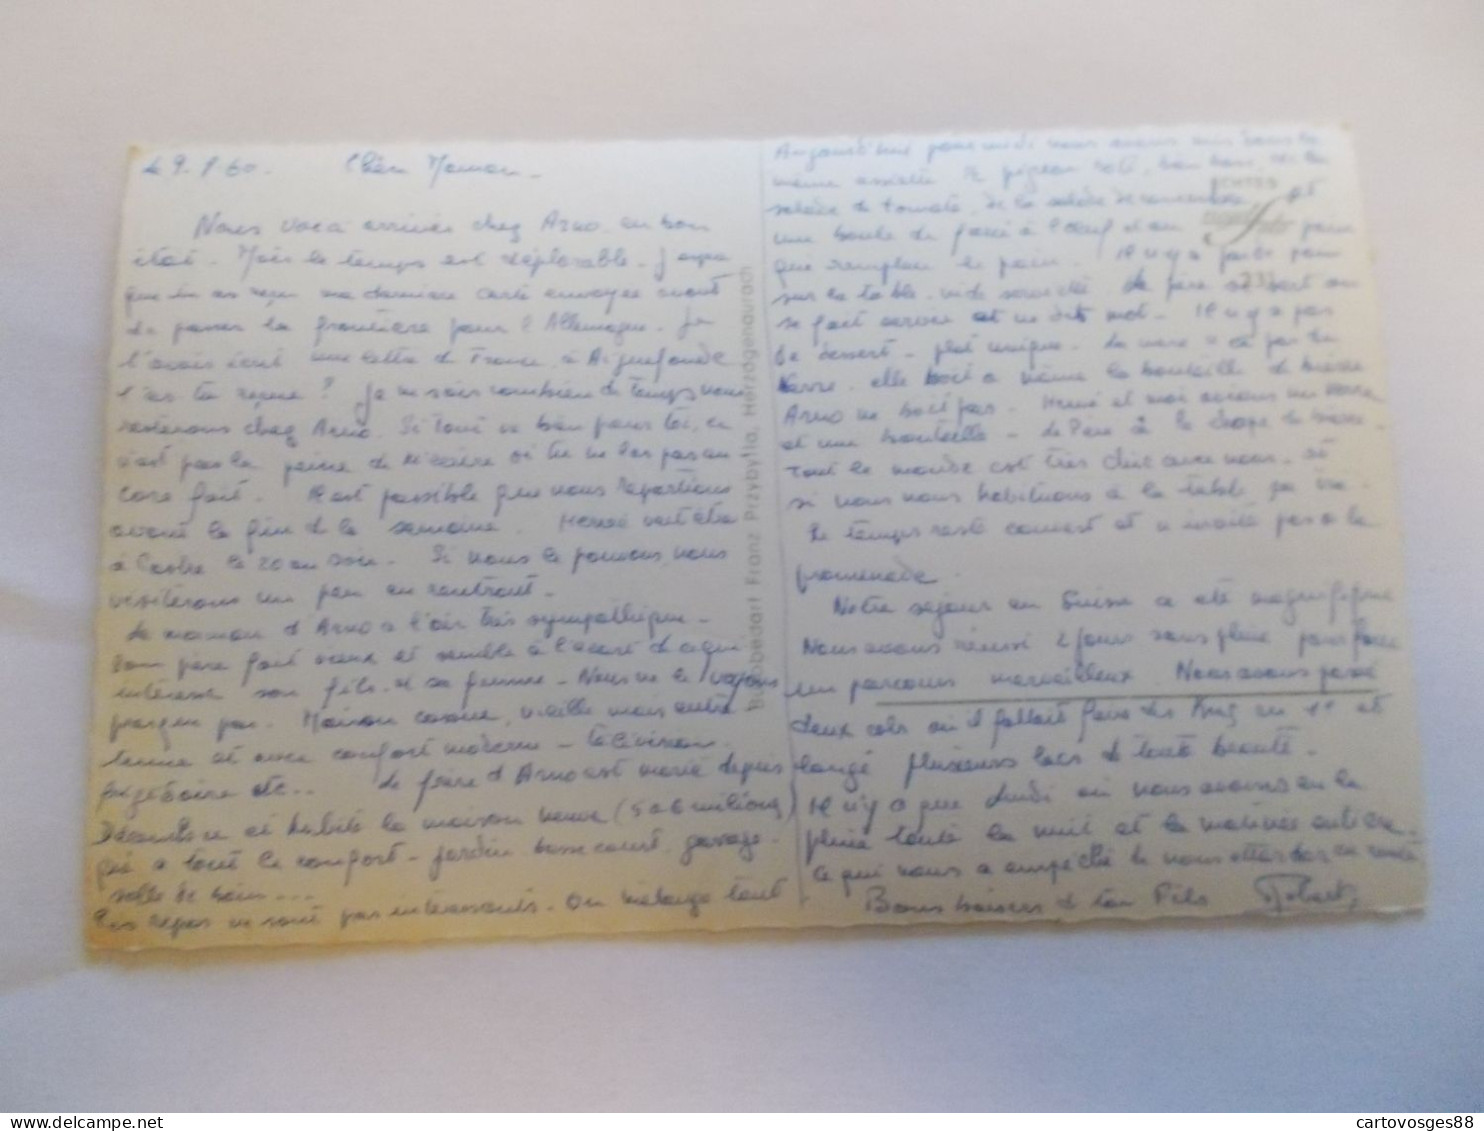 le 9.8.60. Chère Maman.
Nous voici arrivés chez Arno en bon
état. Mais le temps est déplorable. J'espère
que tu as reçu ma dernière carte envoyée avant
de passer la frontière pour l'Allemagne. Je
t'avais écrit une lettre de France, à Aiguefonde
l'as tu reçue ? Je ne sais combien de temps nous
resterons chez Arno. Si tout va bien pour toi, ce
n'est pas la peine de m'écrire si tu ne l'as pas en
core fait. Il est possible que nous repartions
avant la fin de la semaine. Hervé doit être
à Castre le 20 au soir. Si nous le pouvons, nous
visiterons un peu en rentrant.
La maman d'Arno a l'air très sympathique.
Son père fait vieux et semble à l'écart de ce qui
intéresse son fils et sa femme. Nous ne le voyons
presque pas. Maison cossue, vieille mais entre
tenue et avec confort moderne - télévision.
frigidaire etc... Le frère d'Arno est marié depuis
Décembre et habite la maison neuve (5 à 6 millions)
qui a tout le confort - jardin basse court, garage.
salle de bain...
Les repas ne sont pas intéressants. On mélange tout
Aujourd'hui pour midi nous avons mis dans la
même assiette le pigeon rôti, de la
salade de tomate, de la salade de concombre et
une boule de farci à l'oeuf pour
que remplace le pain. Il n'y a pas de pain
sur la table, ni de serviette. Le père
se fait servir et ne dit mot. Il n'y a pas
de dessert - plat unique. La mère n'a pas de
verre. elle boit à même la bouteille de bière
Arno ne boit pas. Hervé et moi avons un verre
et une bouteille - le Père à la chope de bière.
Tout le monde est très chic avec nous. et
si nous nous habituons à la table, ça ira.
Le temps reste couvert et n'invite pas à la
promenade.
Notre séjour en Suisse a été magnifique
Nous avons réussi 2 jours sans pluie pour faire
un parcours merveilleux. Nous avons passé
deux cols où il fallait faire du 10 km en 1re et
longé plusieurs lacs de toute beauté.
Il n'y a que lundi où nous avons eu la
pluie toute la nuit et la matinée entière.
ce qui nous a empêché de nous attarder en route
Bons baisers de ton Fils Robert,
ECHTES
Bürobedarf Franz Przybylla, Herzogenaurach
cartovosges88